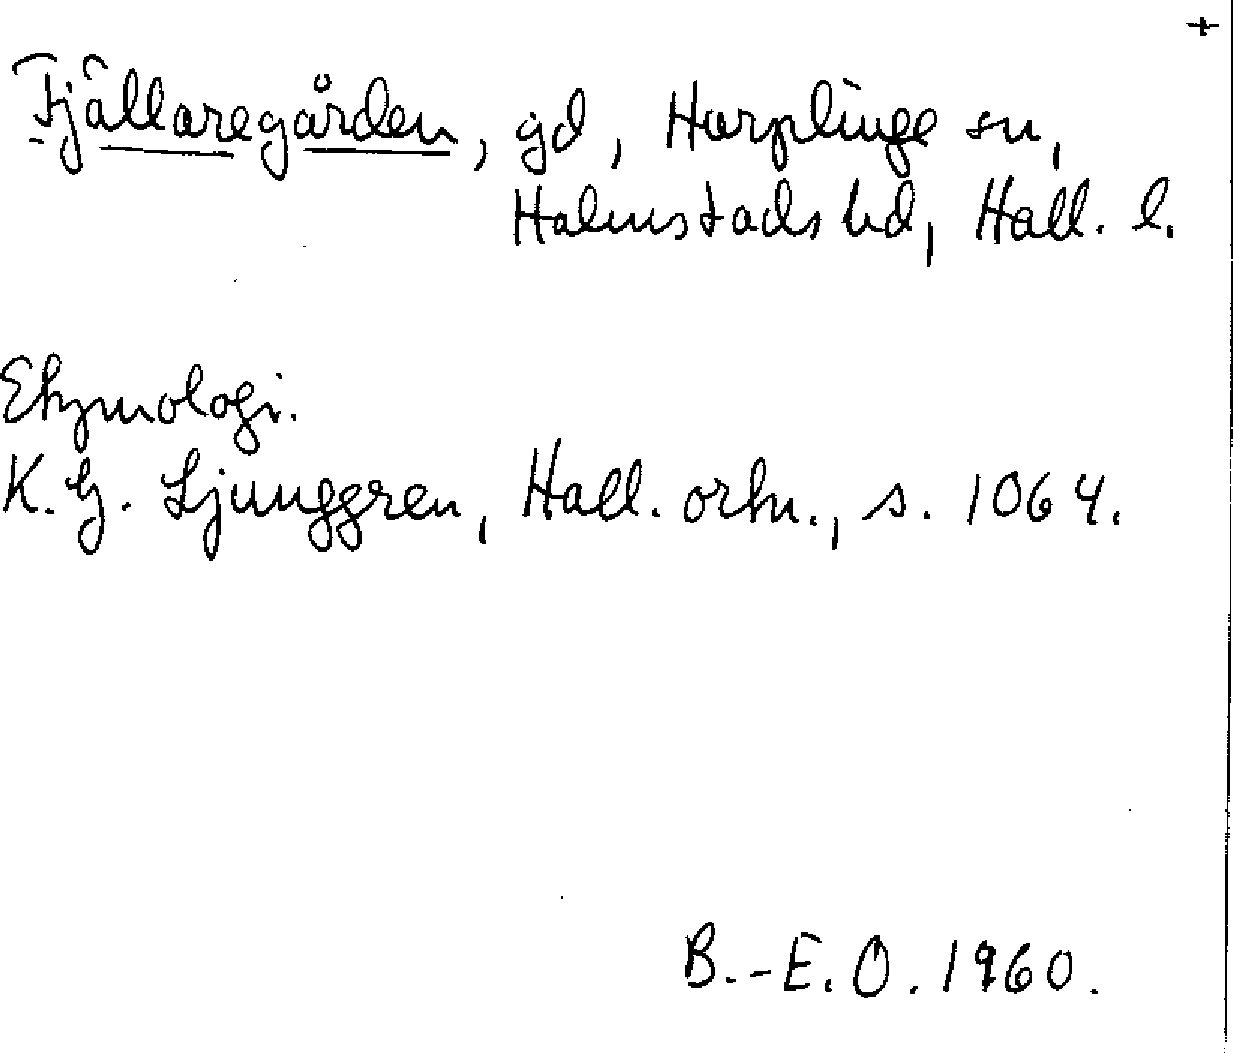 +
Fjällaregården, gd, Harplinge sn,
Halmstads hd, Hall. l.
Etymologi.
K. G. Ljunggren, Hall. ortn., s. 1064.
B.-E. O. 1960.